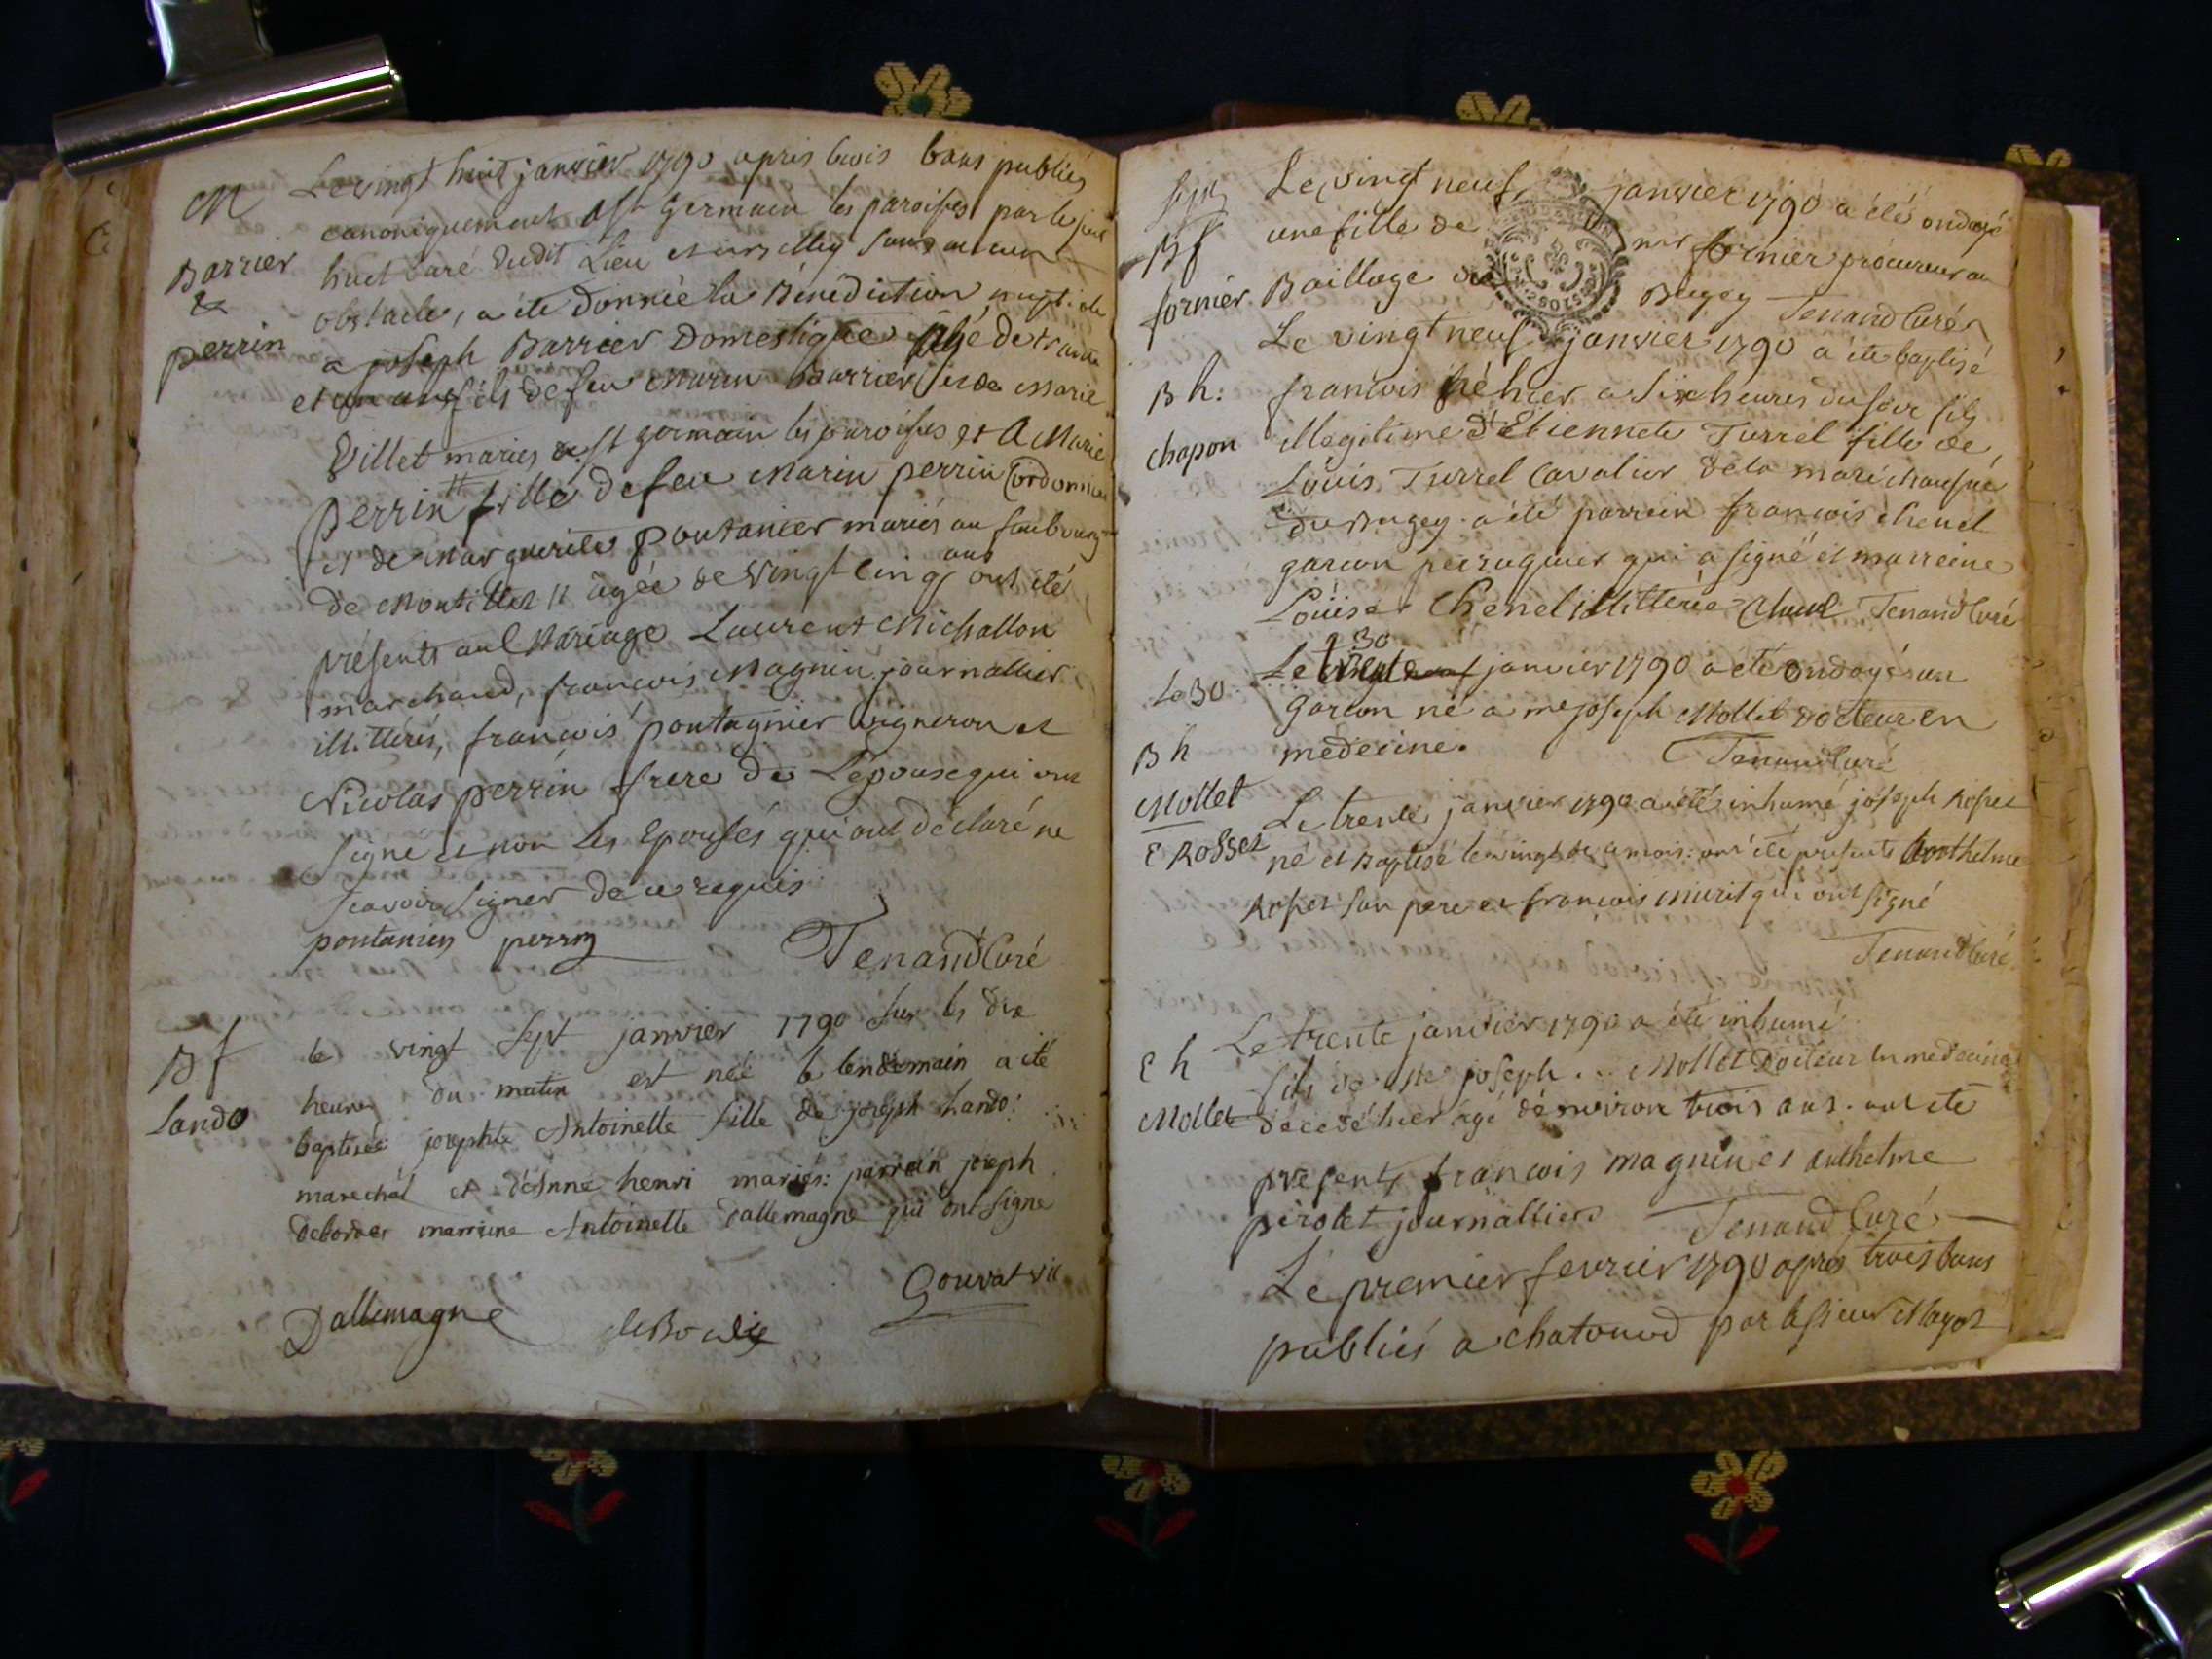 M
Barrier
&
perrin
Le vingt huit janvier 1790 apris trois bans publiés
canoniquement a St Germain les paroisses par le sieur
huet Curé dudit Lieu et sans aucun
obstacle, a ete donnée la Bénédiction nuptiale
a joseph Barrier Domestique agé de trante
et un ans fils de feu Marin Barrier et de Marie
Villet mariés a St germain les paroisses et a Marie
Perrin fille de feu Marin perrin Cordonnier
et de Marguerite poutanier mariés au faubourg
de Montillet agée de vingt cinq ans ont été
présents aud Mariage Laurent Michallon
marchand, francois Magnin journallier
illittérés, francois poutagnier vigneron et
Nicolas perrin frere de L'epouse qui ont
signe et non les Epousés qui ont déclaré ne
scavoir signer de ce requis
poutanier perrin Tenand Curé
B f
Lando
le vingt sept janvier 1790 sur les dix
heures du matin est née le lendemain a été
baptisée josephte Antoinette fille de joseph Lando
marechal et d'Anne henri mariés: parrain joseph
debordes marraine Antoinette dallemagne qui ont signé
Gouvat vic
Dallemagne
B f
fornier
Le vingt neuf janvier 1790 a été ondoyé
une fille de mr fornier procureur au
Baillage du Bugey Tenand Curé
B h:
chapon
Le vingt neuf janvier 1790 a ete baptisé
francois né hier a six heures du soir fils
illegitime d'Etiennete Turrel fille de
Louis Turrel Cavalier de la maréchaussée
du Bugey a été parrein francois chenel
garcon perruquier qui a signé et marreine
Louise Chenel illittérée Chenel Tenand Curé
Le 30
B h
Mollet
30
Le janvier 1790 a été ondoyé un
Garcon né a me joseph Mollet docteur en
médecine. Tenand Curé
E Rosset
Le trente janvier 1790 a été inhumé joseph Rosset
né et Baptisé le vingt de ce mois: ont été presents Anthelme
Rosset son pere et francois murit qui ont signé
Tenand Curé
E h
Mollet
Le trente janvier 1790 a été inhumé
fils de me joseph ... Mollet Docteur en medecine
décédé hier agé d'environ trois ans. ont ete
presents francois magnin et anthelme
perolet journalliers Tenand Curé
Le premier fevrier 1790 apres trois bans
publiés a chatonod par le sieur Mayot